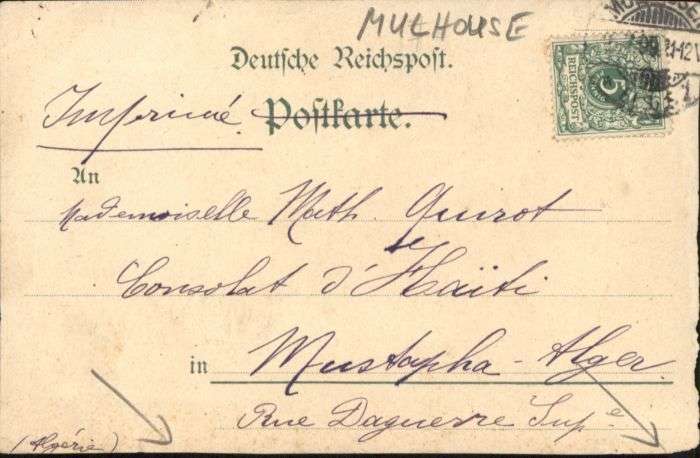 MULHOUSE
Deutsche Reichspost.
Imprimé Postkarte.
5
REICHSPOST
An
Mademoiselle Math. Quirot
Consolat d'Haïti
in Mustapha-Alger.
Rue Daguerre Supe
(Algérie)